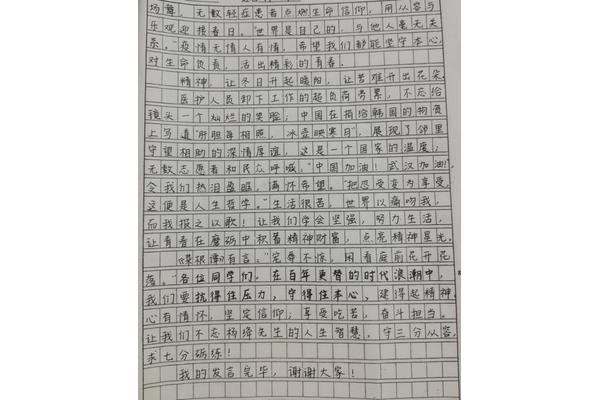 场舞。无数轻症患者点燃生命信仰，用从容与
乐观迎接春日。"世界是自己的，与他人毫无关
系。"疫情无情人有情，希望我们都能坚守本心，
对生命负责，活出精彩的青春。
精神，让冬日升起暖阳，让苦难开出花朵。
医护人员卸下工作的超负荷劳累，不忘给
镜头一个灿烂的笑脸；中国在捐给韩国的物资
上写道"肝胆每相照，冰壶映寒月"，展现了邻里
守望相助的深情厚谊，这是一个国家的温度；
无数志愿者和民众呼喊："中国加油！武汉加油！"，
令我们热泪盈眶，满怀希望。"把忍受变为享受，
这便是人生哲学。"生活很苦，世界以痛吻我，
而我报之以歌！让我们学会坚强，努力生活，
让青春在磨砺中积蓄精神财富，点亮精神星光。
《菜根谭》有言："宠辱不惊，闲看庭前花开花
落。"各位同学们，在百年更替的时代浪潮中，
我们要抗得住压力，守得住本心，建得起精神。
心有情怀，坚定信仰；享受吃苦，奋斗担当。
让我们不忘杨绛先生的人生智慧。守三分从容，
求七分砺练！
我的发言完毕，谢谢大家！